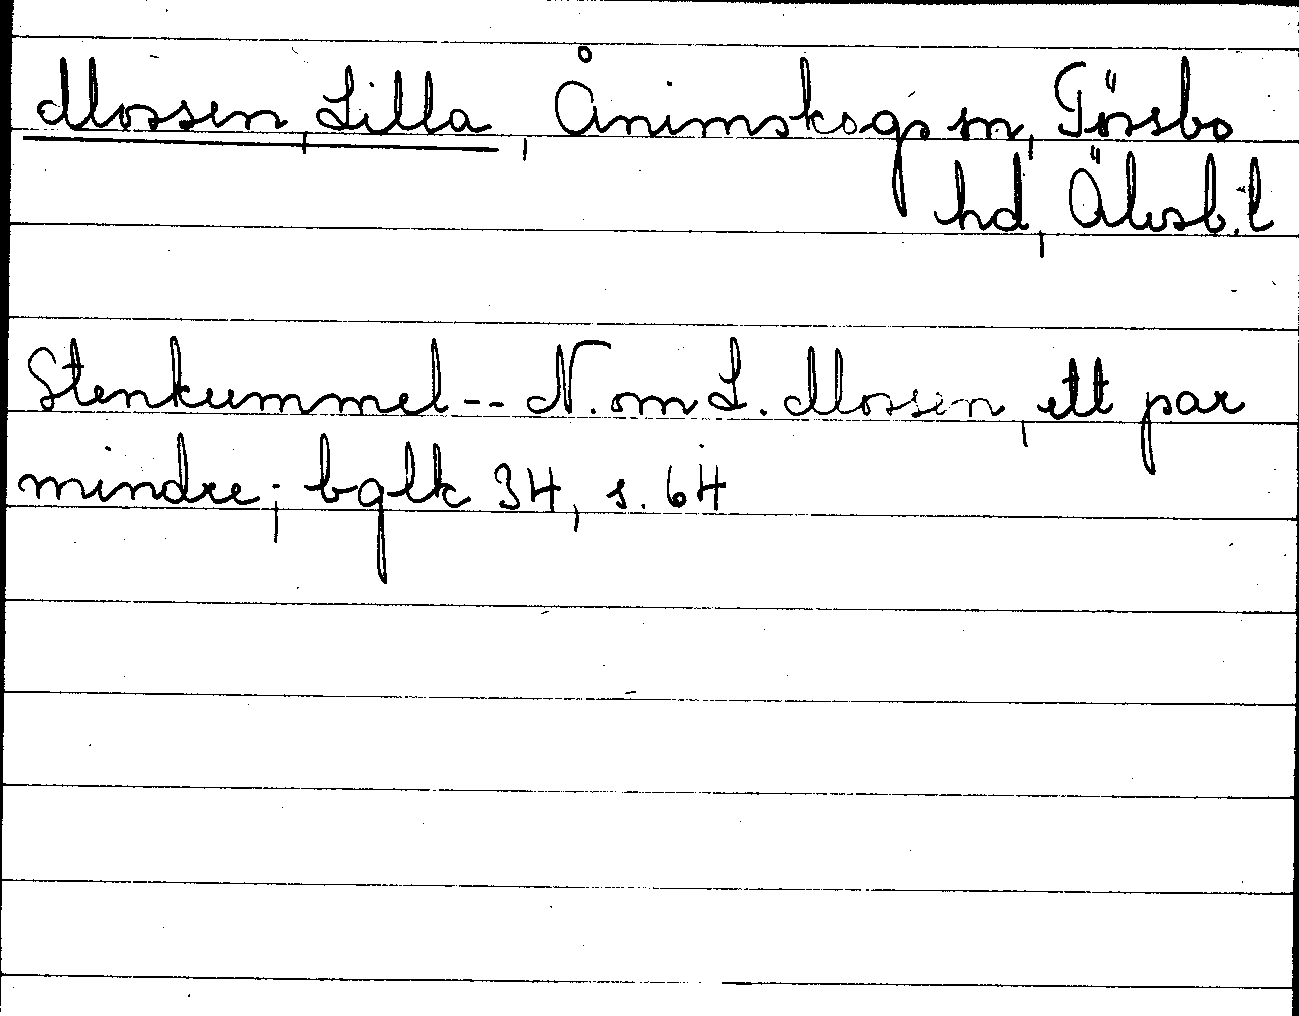 Mossen, Lilla, Ånimskogs sn, Tössbo
hd, Älvsb. l
Stenkummel -- N. om L. Mossen, ett par
mindre; bglk 34, s. 64